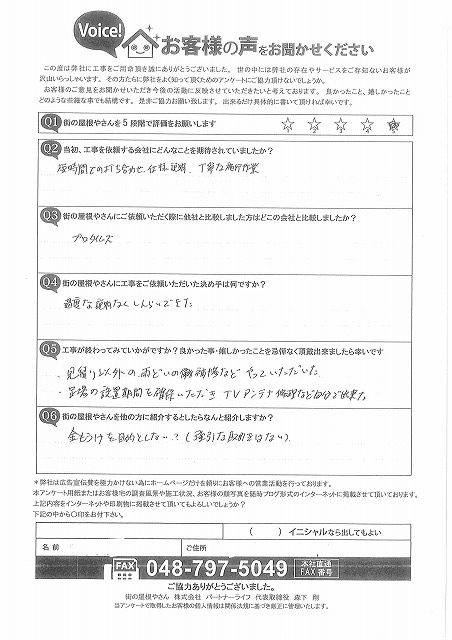 Voice! お客様の声をお聞かせください
この度は弊社に工事をご用命頂き誠にありがとうございました。世の中には弊社の存在やサービスをご存知ないお客様が
沢山いらっしゃいます。その方たちに弊社をよく知って頂くためのアンケートにご協力頂けないでしょうか。
お客様のご意見をお聞かせいただき今後の活動に反映させていただきたいと考えております。良かったこと、嬉しかったこと
どのような些細な事でも結構です。是非ご協力お願い致します。出来るだけ具体的に書いて頂ければ幸いです。
Q1 街の屋根やさんを5段階で評価をお願いします
Q2 当初、工事を依頼する会社にどんなことを期待されていましたか?
短時間での打ち合わせ、仕様説明、丁寧な施行作業
Q3 街の屋根やさんにご依頼いただく際に他社と比較しました方はどこの会社と比較しましたか?
プロタイムズ
Q4 街の屋根やさんに工事をご依頼いただいた決め手は何ですか?
過度な説明なくしんらいできた
Q5 工事が終わってみていかがですか?良かった事・嬉しかったことを忌憚なく頂戴出来ましたら幸いです
・見積り以外の雨どいの補修など やっていただいた
・足場の設置期間を確保いただき TVアンテナ修理など自分で出来た
Q6 街の屋根やさんを他の方に紹介するとしたらなんと紹介しますか?
金もうけを目的としない?(強引な取引きはない)
*弊社は広告宣伝費を極力かけない為にホームページだけを頼りにお客様への営業活動を行っております。
本アンケート用紙またはお客様宅の調査風景や施工状況、お客様の顔写真を随時ブログ形式のインターネットに掲載させて頂いております。
上記内容をインターネットや印刷物に掲載させて頂いてもよろしいでしょうか?
下記の中から〇印をお付下さい。
( ) イニシャルなら出してもよい
名前 ご住所
FAX 048-797-5049 本社直通 FAX番号
ご協力ありがとうございました。
街の屋根やさん 株式会社 パートナーライフ 代表取締役 森下 剛
当アンケートで取得したお客様の個人情報は関係法規に基づき厳正に管理いたします。